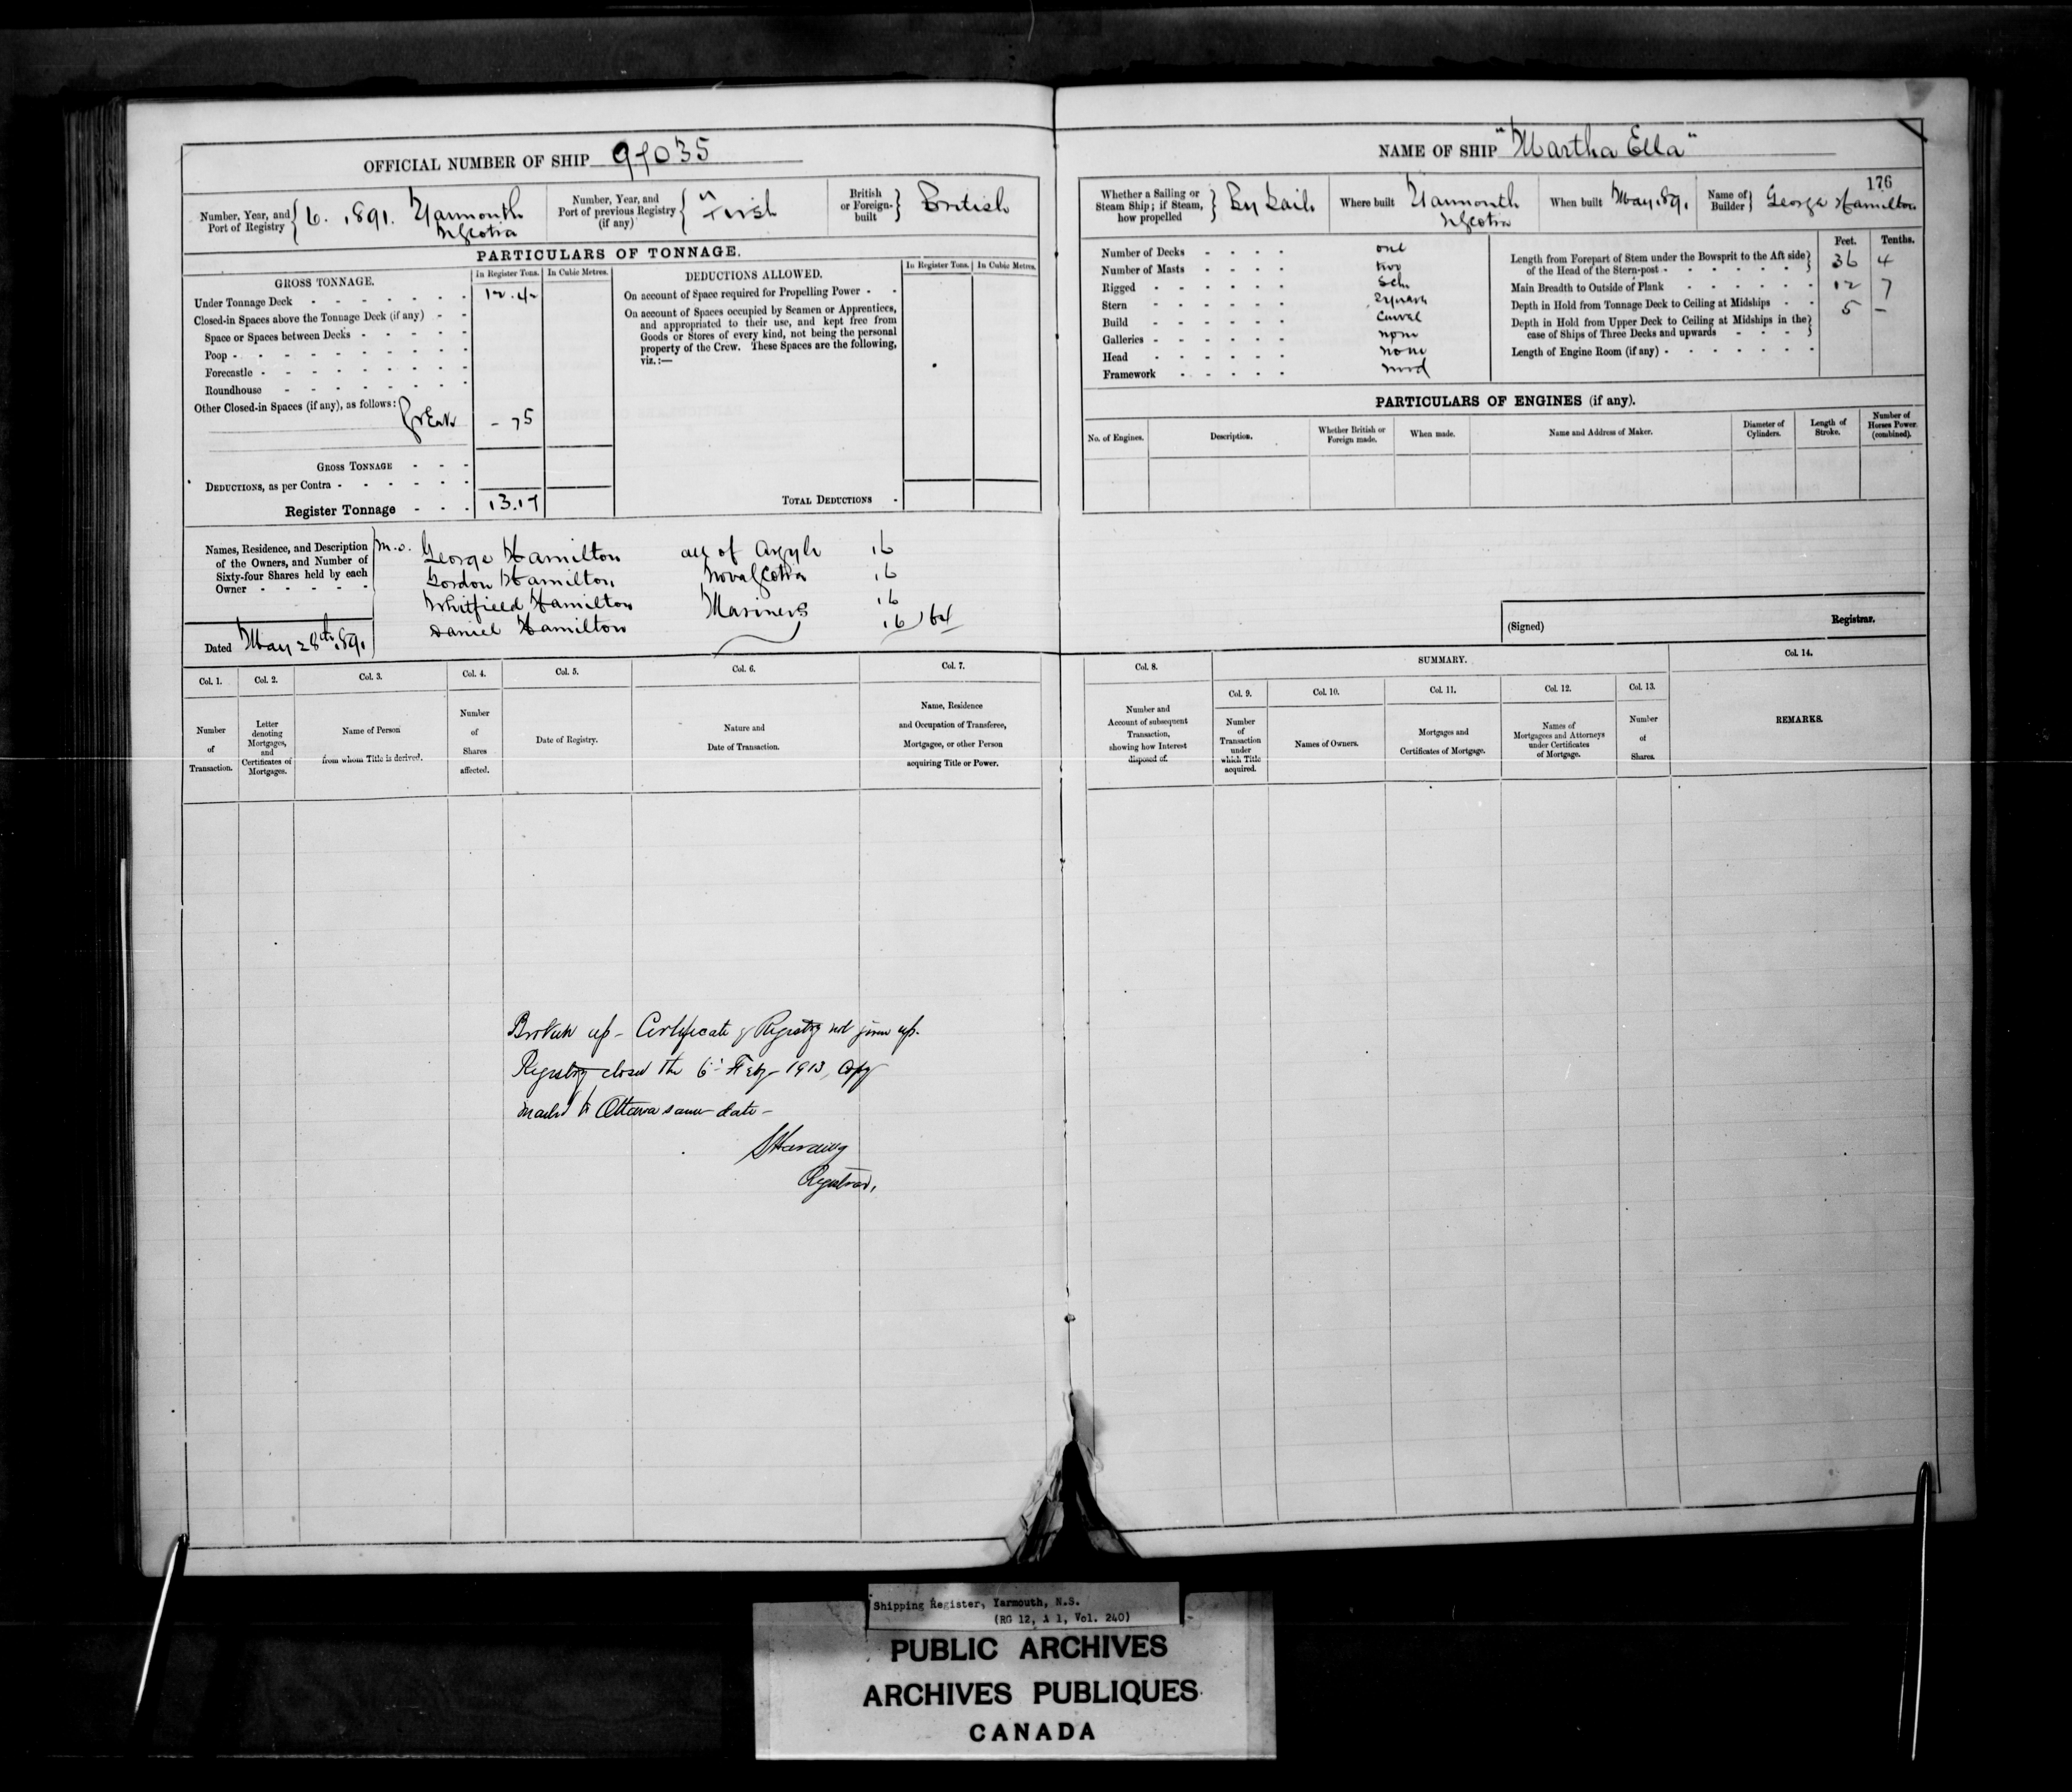 OFFICIAL NUMBER OF SHIP 97035
NAME OF SHIP "Martha Ella"
176
Number, Year, and Port of Registry { 6. 1891. Yarmouth NScotia
Number, Year, and Port of previous Registry (if any) { First
British or Foreign-built } British
Whether a Sailing or Steam Ship; if Steam, how propelled } By Sails
Where built Yarmouth NScotia
When built May 1891
Name of Builder } George Hamilton
PARTICULARS OF TONNAGE.
GROSS TONNAGE. In Register Tons. In Cubic Metres.
Under Tonnage Deck 12.42
Closed-in Spaces above the Tonnage Deck (if any)
Space or Spaces between Decks
Poop
Forecastle
Roundhouse
Other Closed-in Spaces (if any), as follows:
Break - 75
GROSS TONNAGE
DEDUCTIONS, as per Contra
Register Tonnage 13.17
DEDUCTIONS ALLOWED. In Register Tons. In Cubic Metres.
On account of Space required for Propelling Power
On account of Spaces occupied by Seamen or Apprentices,
and appropriated to their use, and kept free from
Goods or Stores of every kind, not being the personal
property of the Crew. These Spaces are the following,
viz.:—
TOTAL DEDUCTIONS
Number of Decks one
Number of Masts two
Rigged Sch.
Stern Square
Build Carvel
Galleries none
Head none
Framework wood
Feet. Tenths.
Length from Forepart of Stem under the Bowsprit to the Aft side
of the Head of the Stern-post 36 4
Main Breadth to Outside of Plank 12 7
Depth in Hold from Tonnage Deck to Ceiling at Midships 5 -
Depth in Hold from Upper Deck to Ceiling at Midships in the
case of Ships of Three Decks and upwards
Length of Engine Room (if any)
PARTICULARS OF ENGINES (if any).
No. of Engines. Description. Whether British or Foreign made. When made. Name and Address of Maker. Diameter of Cylinders. Length of Stroke. Number of Horses Power. (combined).
Names, Residence, and Description
of the Owners, and Number of
Sixty-four Shares held by each
Owner
m.o. George Hamilton all of Argyle 16
Gordon Hamilton Nova Scotia 16
Whitfield Hamilton Mariners 16
Daniel Hamilton 16/64
Dated May 28th 1891
(Signed) Registrar.
Col. 1. Col. 2. Col. 3. Col. 4. Col. 5. Col. 6. Col. 7.
Number of Transaction.
Letter denoting Mortgages, and Certificates of Mortgages.
Name of Person from whom Title is derived.
Number of Shares affected.
Date of Registry.
Nature and Date of Transaction.
Name, Residence and Occupation of Transferee, Mortgagee, or other Person acquiring Title or Power.
Col. 8. SUMMARY. Col. 14.
Col. 9. Col. 10. Col. 11. Col. 12. Col. 13.
Number and Account of subsequent Transaction, showing how Interest disposed of.
Number of Transaction under which Title acquired.
Names of Owners.
Mortgages and Certificates of Mortgage.
Names of Mortgagees and Attorneys under Certificates of Mortgage.
Number of Shares.
REMARKS.
Broken up - Certificate of Registry not given up.
Registry closed the 6th Feby 1913, Copy
mailed to Ottawa same date -
SHarding
Registrar.
Shipping Register, Yarmouth, N.S.
(RG 12, A 1, Vol. 240)
PUBLIC ARCHIVES
ARCHIVES PUBLIQUES
CANADA